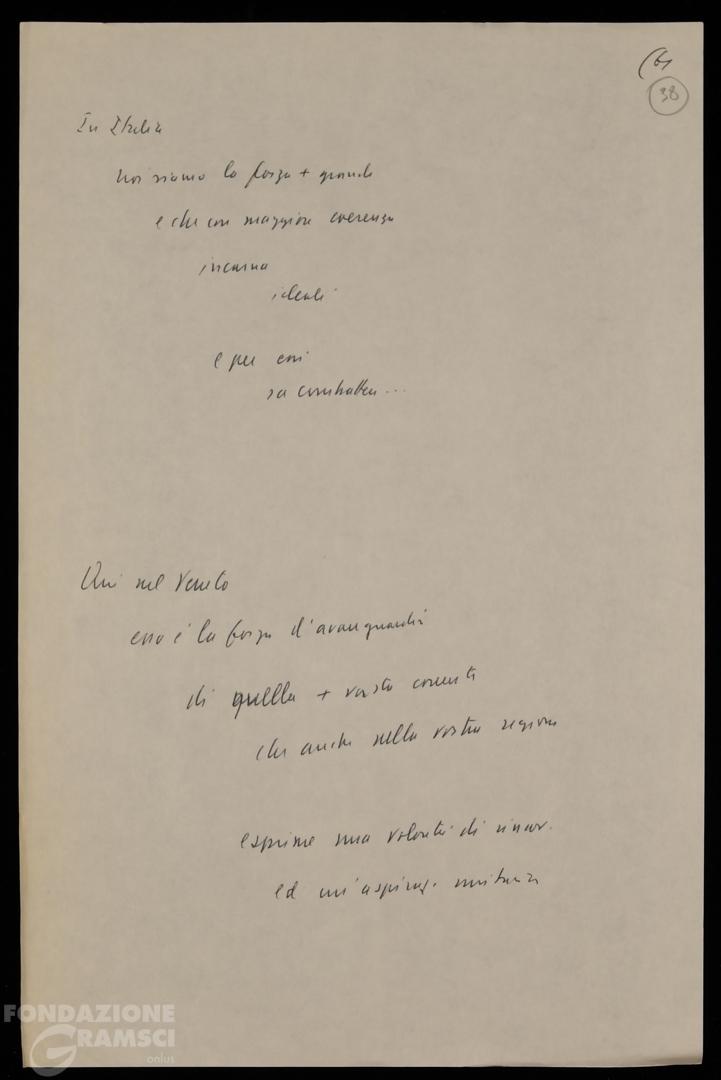 (6
38
In Italia
noi siamo la forza + grande
e che con maggiore coerenza
incarna
ideali
e per essi
sa combattere...
Qui nel Veneto
esso è la forza d'avanguardia
di quella + vasta corrente
che anche nella vostra regione
esprime una volontà di rinnov.
ed un'aspiraz. unitaria
FONDAZIONE
GRAMSCI
onlus